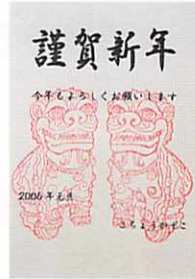 謹賀新年
今年もよろしくお願いします
2006年元旦